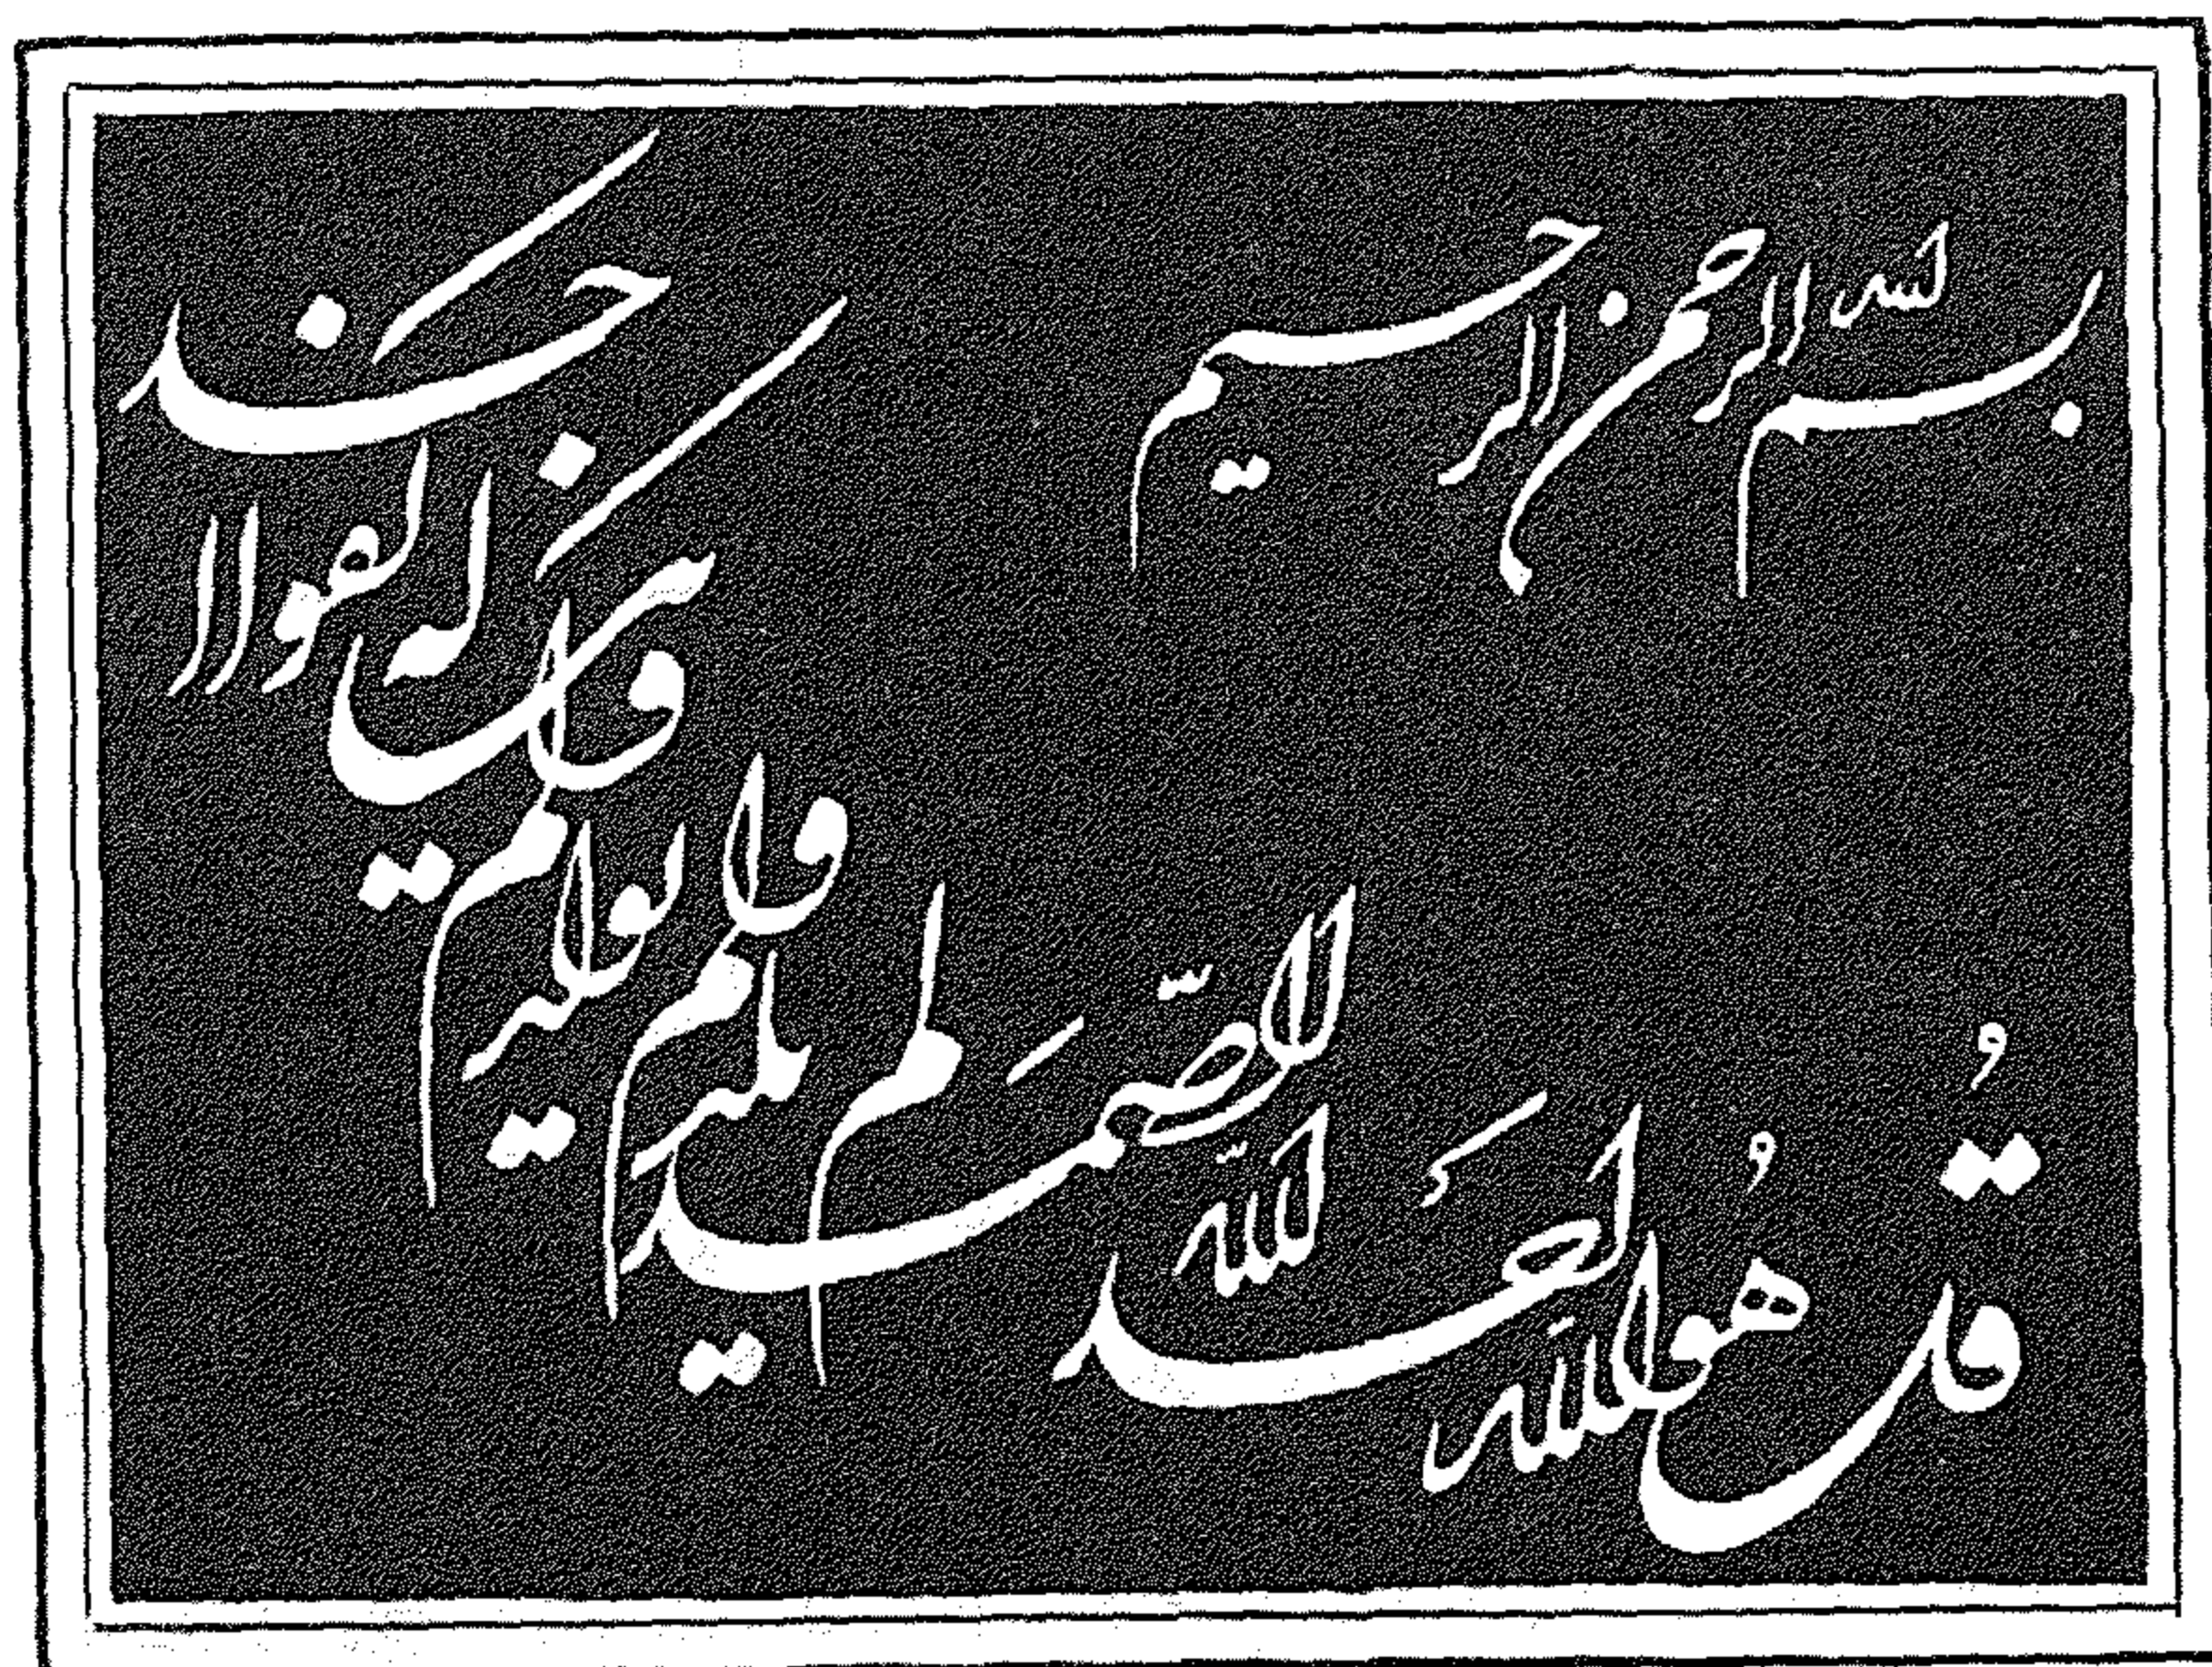 بسم الله الرحمن الرحيم
قُل هوُ الله احد الله الصّمَد لم يلد ولم يولد ولم يكن له كفوا احد